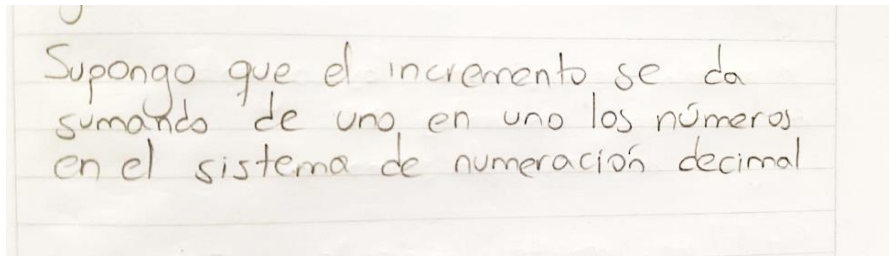 Supongo que el incremento se da
sumando de uno en uno los números
en el sistema de numeración decimal